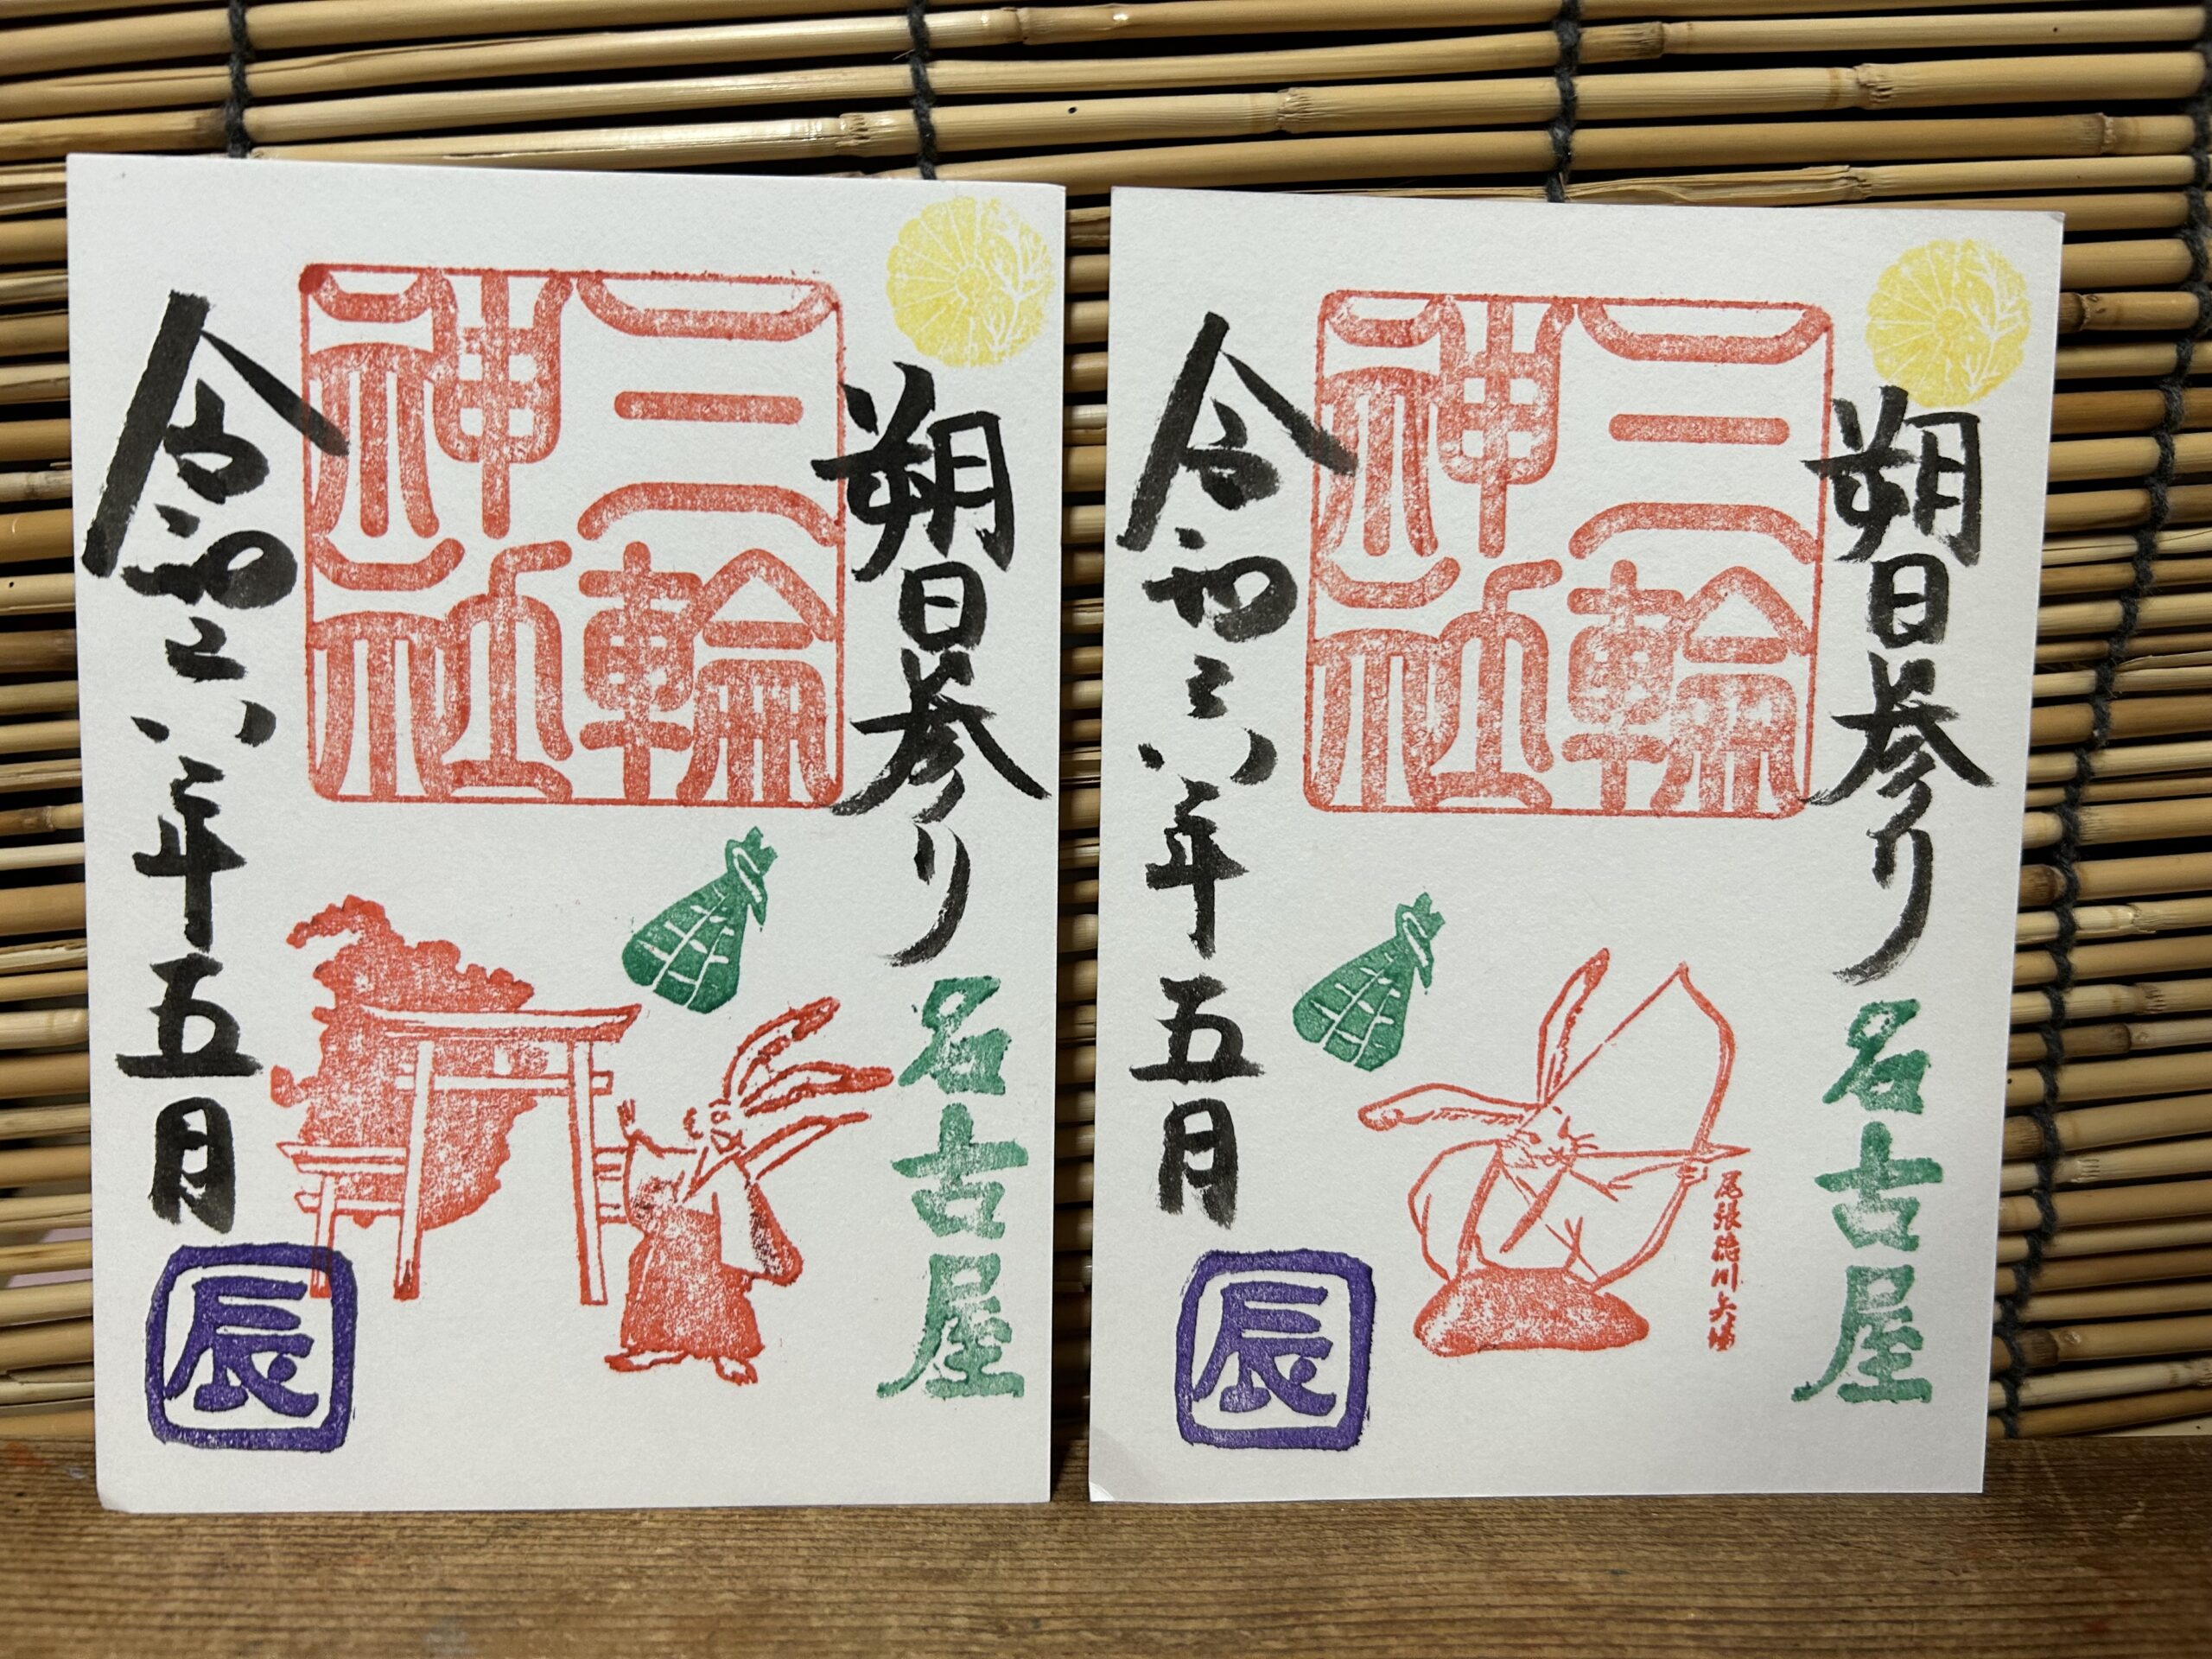 朔日参り
名古屋
三輪
神社
令和六年五月
辰
朔日参り
名古屋
三輪
神社
尾張徳川矢場
令和六年五月
辰